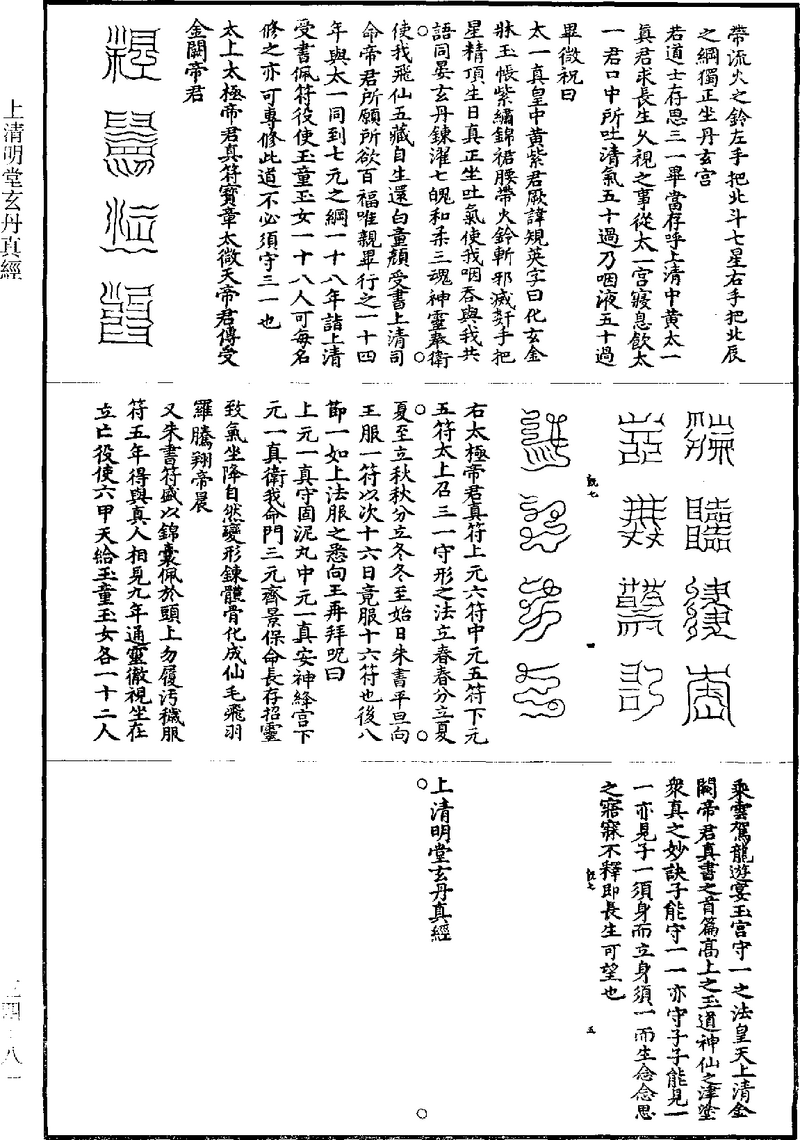 帶流火之鈴左手把北斗七星右手把北辰
之綱獨正坐丹玄宮
若道士存思三一畢當存呼上清中黃太一
真君求長生久視之事從太一宮寢息飲太
一君口中所吐清氣五十過乃咽液五十過
畢微祝曰
太一真皇中黃紫君厥諱規英字曰化玄金
牀玉帳紫繡錦裙腰帶火鈴斬邪滅姧手把
星精頂生日真正坐吐氣使我咽吞與我共
語同晏玄丹鍊濯七魄和柔三魂神靈奉衛
使我飛仙五藏自生還白童顏受書上清司
命帝君所願所欲百福唯親畢行之一十四
年與太一同到七元之綱一十八年詣上清
受書佩符役使玉童玉女一十八人可每名
修之亦可專修此道不必須守三一也
太上太極帝君真符寶章太微天帝君傳受
金闕帝君
右太極帝君真符上元六符中元五符下元
五符太上召三一守形之法立春春分立夏
夏至立秋秋分立冬冬至始日朱書平旦向
王服一符以次十六日竟服十六符也後八
節一如上法服之悉向王再拜呪曰
上元一真守固泥丸中元一真安神絳宮下
元一真衛我命門三元齊景保命長存招靈
致氣坐降自然變形鍊髓骨化成仙毛飛羽
羅騰翔帝晨
又朱書符盛以錦囊佩於頭上勿履污穢服
符五年得與真人相見九年通靈徹視坐在
立亡役使六甲天給玉童玉女各一十二人
乘雲駕龍遊宴玉宮守一之法皇天上清金
闕帝君真書之首篇高上之玉道神仙之津塗
衆真之妙訣子能守一一亦守子子能見一
一亦見子一須身而立身須一而生念念思
之寤寐不釋即長生可望也
上清明堂玄丹真經
四
五
上清明堂玄丹真經